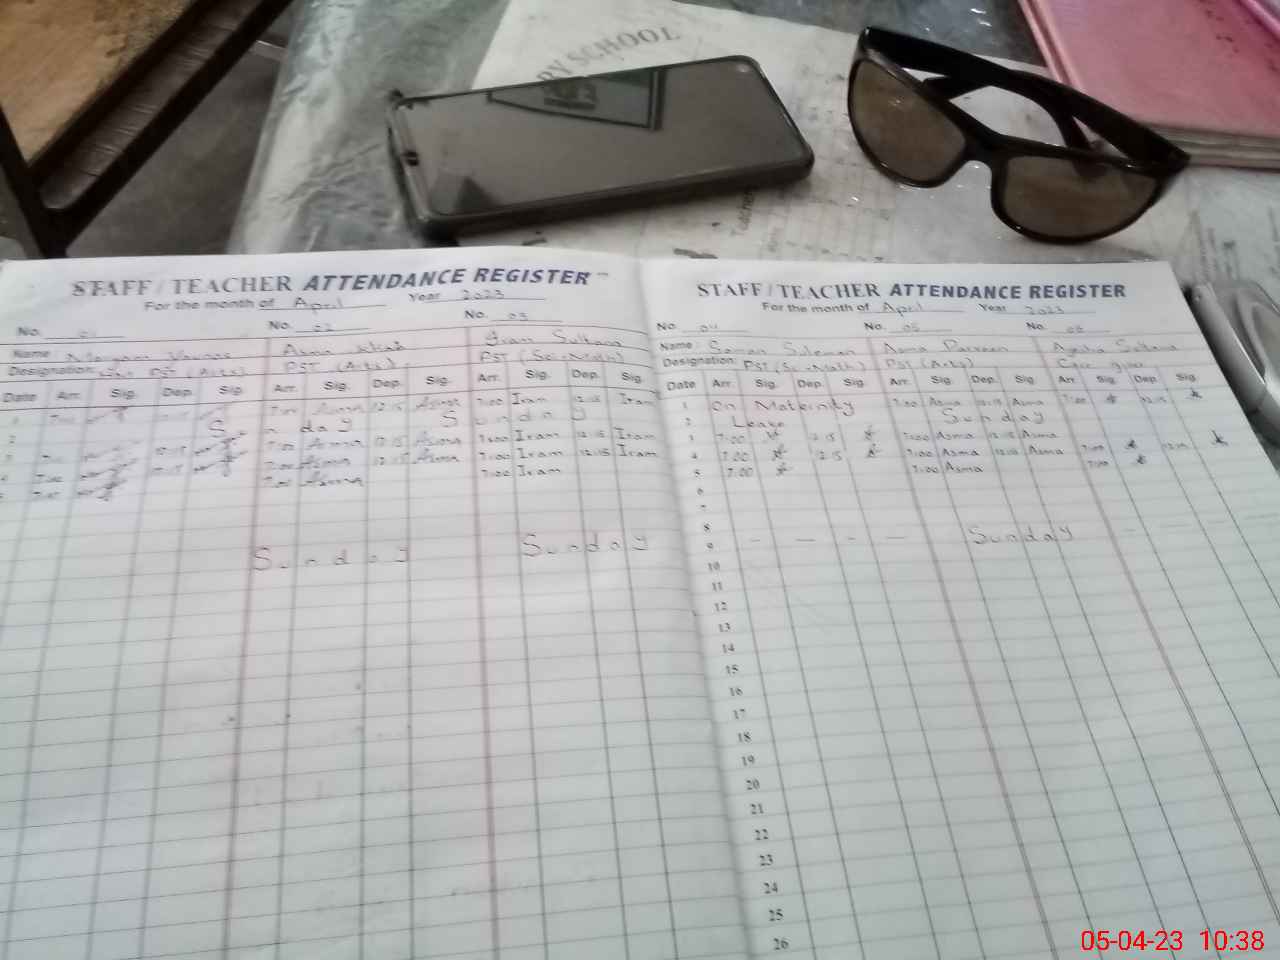 RY SCHOOL
STAFF / TEACHER ATTENDANCE REGISTER
For the month of April Year 2023
No. 01 No. 02 No. 03
Name Asma Iram Sultana
Designation: PST (Arts) PST (Arts) PST (Sci-Math)
Date Arr. Sig. Dep. Sig. Arr. Sig. Dep. Sig. Arr. Sig. Dep. Sig.
1 7:00 7:00 Asma 12:15 Asma 7:00 Iram 12:15 Iram
2 Sunday Sunday
3 7:00 Asma 12:15 Asma 7:00 Iram 12:15 Iram
4 7:00 7:00 Asma 12:15 Asma 7:00 Iram 12:15 Iram
5 7:00 7:00 Asma 7:00 Iram
Sunday Sunday
STAFF / TEACHER ATTENDANCE REGISTER
For the month of April Year 2023
No. 04 No. 05 No. 06
Name: Saman Suleman Asma Parveen Ayesha Sultana
Designation: PST (Sc-Math) PST (Arts) Care giver
Date Arr. Sig. Dep. Sig. Arr. Sig. Dep. Sig. Arr. Sig. Dep. Sig.
1 On Maternity 7:00 Asma 12:15 Asma 7:00
2 Leave Sunday
3 7:00 12:15 7:00 Asma 12:15 Asma
4 7:00 12:15 7:00 Asma 12:15 Asma 7:00 12:15
5 7:00 7:00 Asma 7:00
6
7
8
9 - - - - Sunday
10
11
12
13
14
15
16
17
18
19
20
21
22
23
24
25
26
05-04-23 10:38